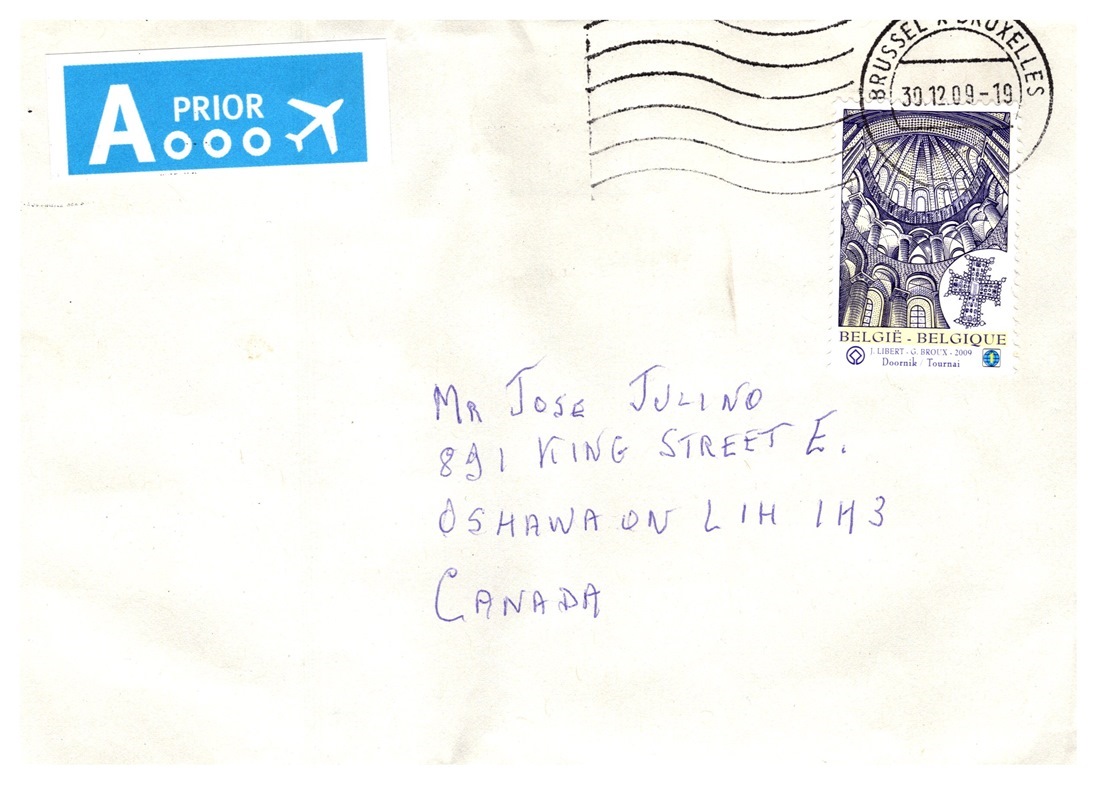 A PRIOR
BRUSSEL X BRUXELLES
30.12.09-19
BELGIË - BELGIQUE
J. LIBERT - G. BROUX - 2009
Doornik / Tournai
MR JOSE JULINO
891 KING STREET E.
OSHAWA ON L1H 1H3
CANADA